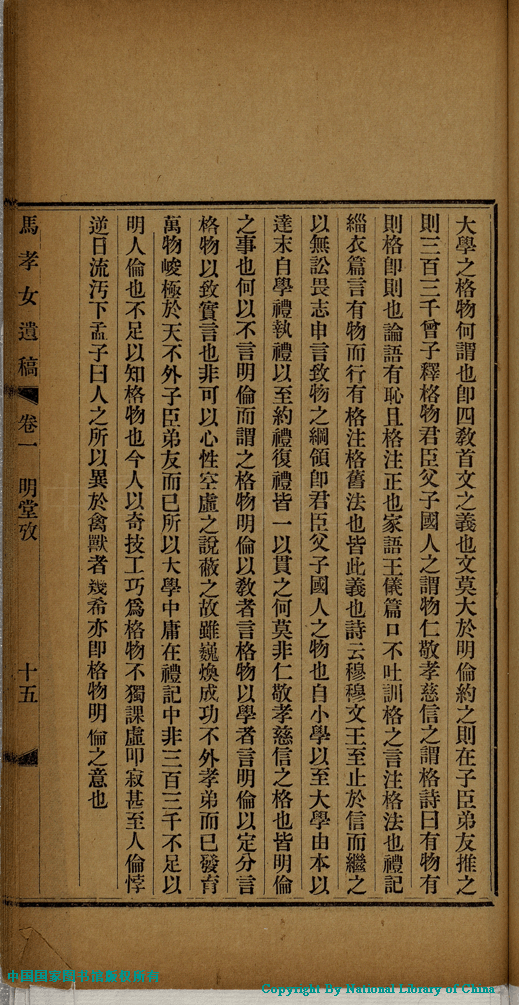 大學之格物何謂也卽四敎首文之義也文莫大於明倫約之則在子臣弟友推之
則三百三千曾子釋格物君臣父子國人之謂物仁敬孝慈信之謂格詩曰有物有
則格卽則也論語有恥且格注正也家語王儀篇口不吐訓格之言注格法也禮記
緇衣篇言有物而行有格注格舊法也皆此義也詩云穆穆文王至止於信而繼之
以無訟畏志申言致物之綱領卽君臣父子國人之物也自小學以至大學由本以
達末自學禮執禮以至約禮復禮皆一以貫之何莫非仁敬孝慈信之格也皆明倫
之事也何以不言明倫而謂之格物明倫以敎者言格物以學者言明倫以定分言
格物以致實言也非可以心性空虛之說蔽之故雖巍煥成功不外孝弟而已發育
萬物峻極於天不外子臣弟友而已所以大學中庸在禮記中非三百三千不足以
明人倫也不足以知格物也今人以奇技工巧爲格物不獨課虛叩寂甚至人倫悖
逆日流汚下孟子曰人之所以異於禽獸者幾希亦卽格物明倫之意也
馬孝女遺稿 卷一 明堂攷 十五
中国国家图书馆版权所有
Copyright By National Library of China